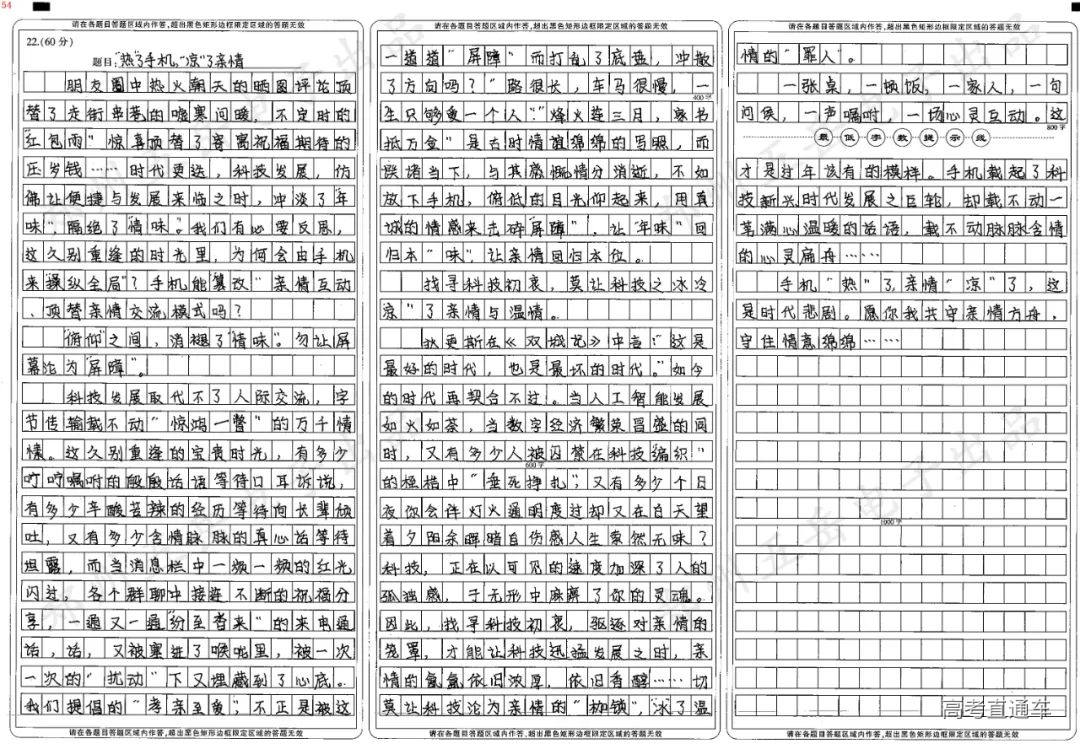 54
请在各题目答题区域内作答,超出黑色矩形边框限定区域的答题无效
22.(60分)
题目:“热”了手机,“凉”了亲情
朋友圈中热火朝天的晒图评论顶
替了走街串巷的嘘寒问暖,不定时的
“红包雨”惊喜顶替了寄寓祝福期待的
压岁钱……时代更迭,科技发展,仿
佛让便捷与发展来临之时,冲淡了“年
味”,隔绝了“情味”。我们有必要反思,
这久别重逢的时光里,为何会由手机
来“操纵全局”?手机能“篡改”亲情互动
、顶替亲情交流模式吗?
“俯仰”之间,消褪了“情味”。勿让屏
幕沦为“屏障”。
科技发展取代不了人际交流,字
节传输载不动“惊鸿一瞥”的万千情
愫。这久别重逢的宝贵时光,有多少
叮咛嘱咐的殷殷话语等待口耳诉说,
有多少辛酸苦辣的经历等待向长辈倾
吐,又有多少含情脉脉的真心话等待
坦露,而当消息栏中一频一频的红光
闪过,各个群聊中接连不断的祝福分
享,一通又一通“纷至沓来”的来电通
话,话,又被塞进了喉咙里,被一次
一次的“扰动”下又埋藏到了心底。
我们提倡的“孝亲至爱”,不正是被这
请在各题目答题区域内作答,超出黑色矩形边框限定区域的答题无效
请在各题目答题区域内作答,超出黑色矩形边框限定区域的答题无效
一道道“屏障”而打乱了底盘,冲散
了方向吗?“路很长,车马很慢,一
400字
生只够爱一个人”“烽火连三月,家书
抵万金”是古时情谊绵绵的写照,而
談诸当下,与其感慨情分消逝,不如
放下手机,俯低的目光仰起来,用真
诚的情感来击碎“屏障”,让“年味”回
归本“味”,让亲情回归本位。
找寻科技初衷,莫让科技之冰冷
“凉”了亲情与温情。
狄更斯在《双城记》中言:“这是
最好的时代,也是最坏的时代。”如今
的时代再契合不过。当人工智能发展
如火如荼,当数字经济繁荣昌盛的同
时,又有多少人被囚禁在科技“编织”
600字
的桎梏中“垂死挣扎”;又有多少个日
夜你会伴灯火通明度过却又在白天望
着夕阳余晖暗自伤感人生索然无味?
科技,正在以可见的速度加深了人的
孤独感,于无形中麻痹了你的灵魂。
因此,找寻科技初衷,驱逐对亲情的
笼罩,才能让科技迅猛发展之时,亲
情的氤氲依旧浓厚,依旧香醇……切
莫让科技沦为亲情的“枷锁”,“冰”了温
请在各题目答题区域内作答,超出黑色矩形边框限定区域的答题无效
请在各题目答题区域内作答,超出黑色矩形边框限定区域的答题无效
情的“罪人”。
一张桌,一顿饭,一家人,一句
问候,一声嘱咐,一场心灵互动。这
800字
最低字数提示段
才是过年该有的模样。手机载起了科
技新兴时代发展之巨轮,却载不动一
茎满心温暖的话语,载不动脉脉含情
的心灵扁舟……
手机“热”了,亲情“凉”了,这
是时代悲剧。愿你我共守亲情方舟,
守住情意绵绵……
1000字
高考直通车
请在各题目答题区域内作答,超出黑色矩形边框限定区域的答题无效